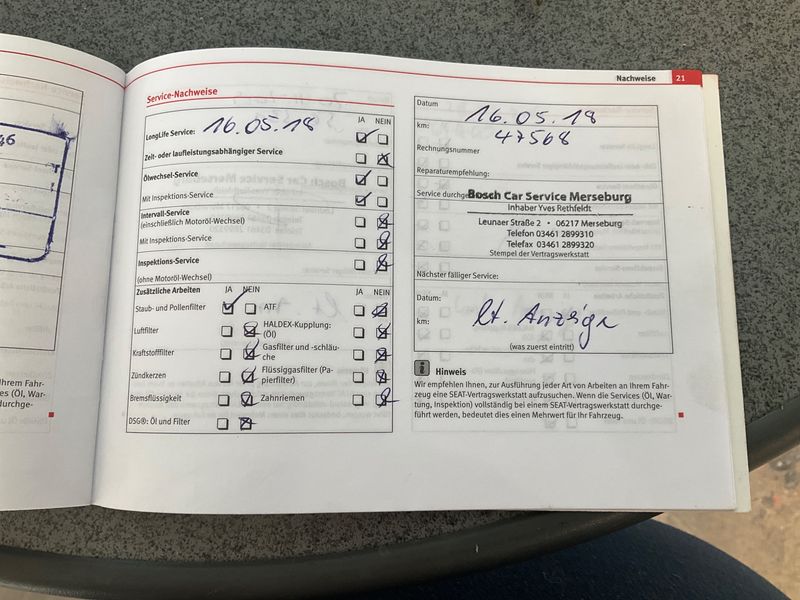 Nachweise 21
46
Service-Nachweise
JA NEIN
LongLife Service: 16.05.18
Zeit- oder laufleistungsabhängiger Service
Ölwechsel-Service
Mit Inspektions-Service
Intervall-Service
(einschließlich Motoröl-Wechsel)
Mit Inspektions-Service
Inspektions-Service
(ohne Motoröl-Wechsel)
Zusätzliche Arbeiten JA NEIN JA NEIN
Staub- und Pollenfilter ATF
Luftfilter HALDEX-Kupplung:
(Öl)
Kraftstofffilter Gasfilter und -schläu-
che
Zündkerzen Flüssiggasfilter (Pa-
pierfilter)
Bremsflüssigkeit Zahnriemen
DSG®: Öl und Filter
Datum 16.05.18
km: 47568
Rechnungsnummer
Reparaturempfehlung:
Service durchge
Bosch Car Service Merseburg
Inhaber Yves Rethfeldt
Leunaer Straße 2 • 06217 Merseburg
Telefon 03461 2899310
Telefax 03461 2899320
Stempel der Vertragswerkstatt
Nächster fälliger Service:
Datum:
lt. Anzeige
km:
(was zuerst eintritt)
i Hinweis
Wir empfehlen Ihnen, zur Ausführung jeder Art von Arbeiten an Ihrem Fahr-
zeug eine SEAT-Vertragswerkstatt aufzusuchen. Wenn die Services (Öl, War-
tung, Inspektion) vollständig bei einem SEAT-Vertragswerkstatt durchge-
führt werden, bedeutet dies einen Mehrwert für Ihr Fahrzeug.
Ihrem Fahr-
es (Öl, War-
durchge-